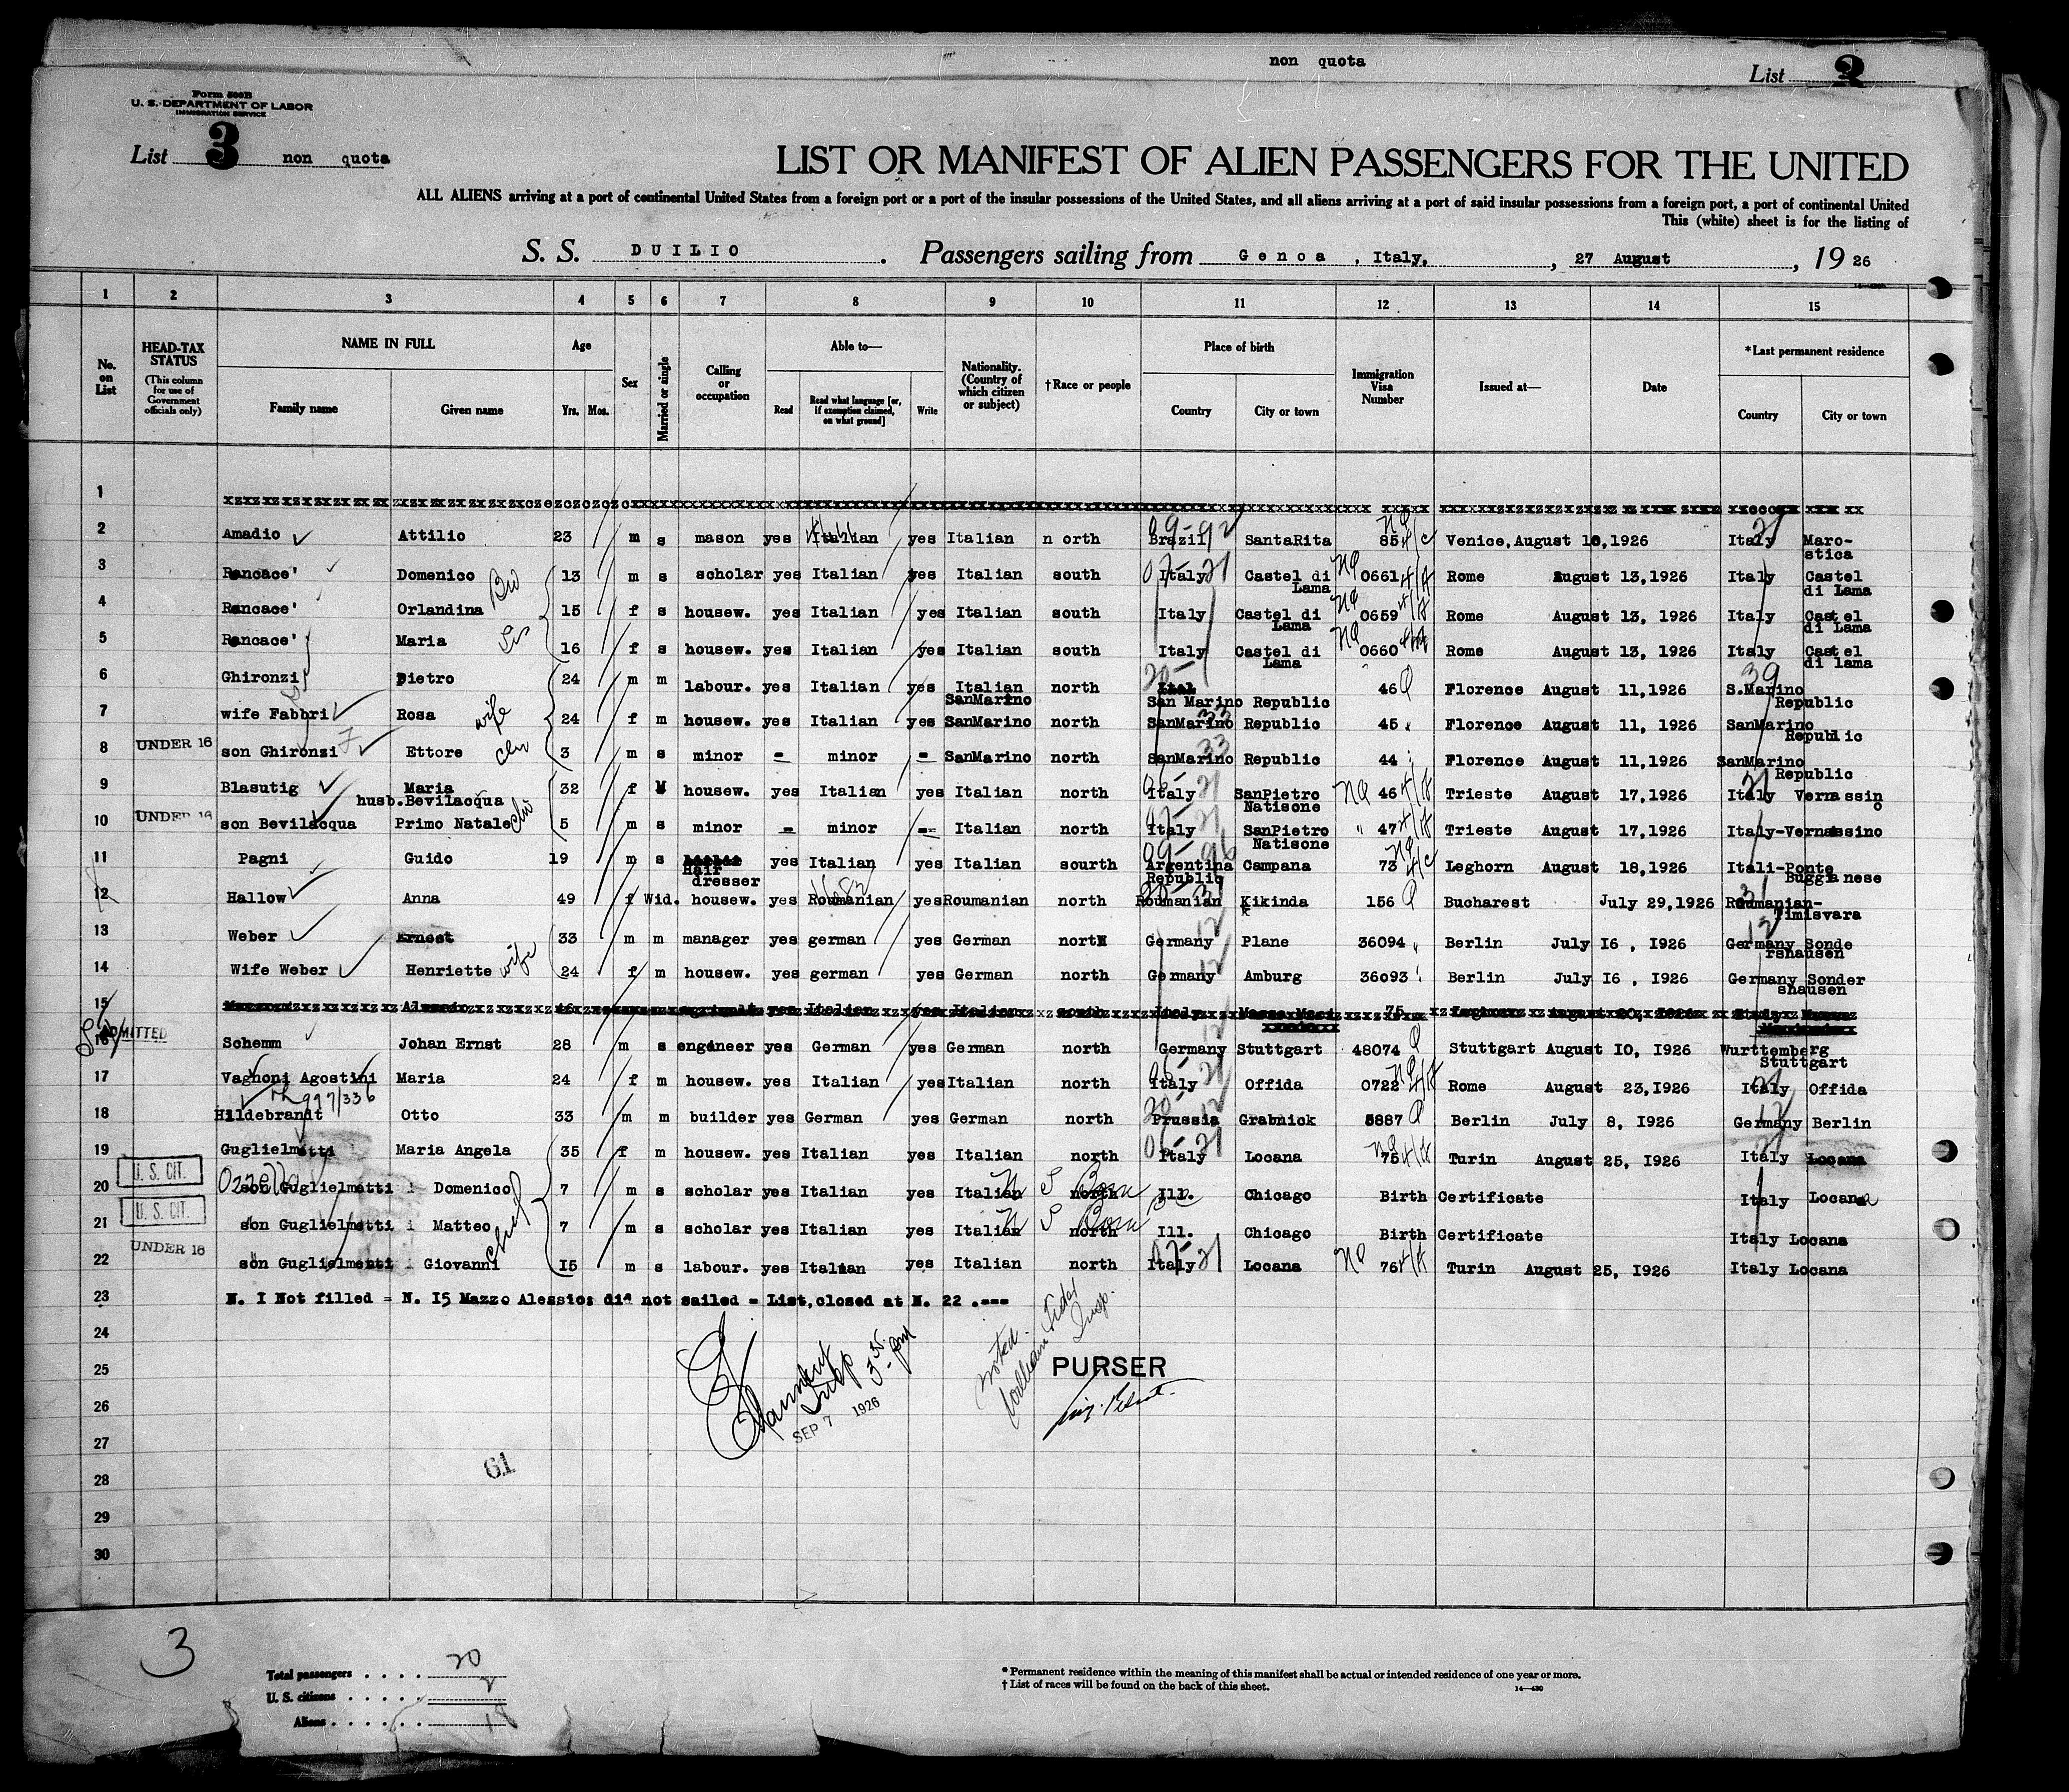 non quota
List 2
Form 500B
U. S. DEPARTMENT OF LABOR
IMMIGRATION SERVICE
List 3 non quota
LIST OR MANIFEST OF ALIEN PASSENGERS FOR THE UNITED
ALL ALIENS arriving at a port of continental United States from a foreign port or a port of the insular possessions of the United States, and all aliens arriving at a port of said insular possessions from a foreign port, a port of continental United
This (white) sheet is for the listing of
S. S. DUILIO . Passengers sailing from Genoa , Italy. , 27 August , 19 26
1 2 3 4 5 6 7 8 9 10 11 12 13 14 15
No. on List
HEAD-TAX STATUS (This column for use of Government officials only)
NAME IN FULL
Family name Given name
Age
Yrs. Mos.
Sex
Married or single
Calling or occupation
Able to—
Read Read what language [or, if exemption claimed, on what ground] Write
Nationality. (Country of which citizen or subject)
†Race or people
Place of birth
Country City or town
Immigration Visa Number
Issued at—
Date
*Last permanent residence
Country City or town
1
2 Amadio Attilio 23 m s mason yes Italian yes Italian n orth Brazil SantaRita 85 Venice, August 10, 1926 Italy Maro-
stica
3 Rancace' Domenico Bro 13 m s scholar yes Italian yes Italian south Italy Castel di Lama 0661 Rome August 13, 1926 Italy Castel
di Lama
4 Rancace' Orlandina 15 f s housew. yes Italian yes Italian south Italy Castel di Lama 0659 Rome August 13, 1926 Italy Castel
di Lama
5 Rancace' Maria 16 f s housew. yes Italian yes Italian south Italy Castel di Lama 0660 Rome August 13, 1926 Italy Castel
di lama
6 Ghironzi Pietro 24 m m labour. yes Italian yes Italian SanMarino north San Marino Republic 46 Florence August 11, 1926 S.Marino
Republic
7 wife Fabbri Rosa wife 24 f m housew. yes Italian yes SanMarino north SanMarino Republic 45 Florence August 11, 1926 SanMarino
Republic
8 UNDER 16 son Ghironzi Ettore 3 m s minor - minor - SanMarino north SanMarino Republic 44 Florence August 11, 1926 SanMarino
Republic
9 Blasutig Maria 32 f M housew. yes Italian yes Italian north Italy SanPietro Natisone 46 Trieste August 17, 1926 Italy Vernassin
o
husb.Bevilacqua
10 UNDER 16 son Bevilacqua Primo Natale 5 m s minor - minor - Italian north Italy SanPietro Natisone 47 Trieste August 17, 1926 Italy-Vernassino
11 Pagni Guido 19 m s Hair dresser yes Italian yes Italian sourth Argentina Republic Campana 73 Leghorn August 18, 1926 Itali-Ponte
Buggianese
12 Hallow Anna 49 f Wid. housew. yes Roumanian yes Roumanian north Roumanian Kikinda 156 Bucharest July 29, 1926 Roumanian-
Timisvara
13 Weber Ernest 33 m m manager yes german yes German north Germany Plane 36094 Berlin July I6 , I926 Germany Sonde
rshausen
14 Wife Weber Henriette wife 24 f m housew. yes german yes German north Germany Amburg 36093 Berlin July I6 , I926 Germany Sonder
shausen
15
ADMITTED
16 Schemm Johan Ernst 28 m s engineer yes German yes German north Germany Stuttgart 48074 Stuttgart August I0, I926 Wurttemberg
Stuttgart
17 Vagnoni Agostini Maria 24 f m housew. yes Italian yes Italian north Italy Offida 0722 Rome August 23, 1926 Italy Offida
18 Hildebrandt Otto 33 m m builder yes German yes German north Prussia Grabnick 5887 Berlin July 8, I926 Germany Berlin
19 Guglielmetti Maria Angela 35 f m housew. yes Italian yes Italian north Italy Locana 75 Turin August 25, I926 Italy Locana
20 U. S. CIT. son Guglielmetti Domenico 7 m s scholar yes Italian yes Italian north Ill. Chicago Birth Certificate Italy Locana
21 U. S. CIT. son Guglielmetti Matteo 7 m s scholar yes Italian yes Italian north Ill. Chicago Birth Certificate Italy Locana
22 UNDER 16 son Guglielmenti Giovanni I5 m s labour. yes Italian yes Italian north Italy Locana 76 Turin August 25, I926 Italy Locana
23 N. I Not filled = N. I5 Mazzo Alessio: did not sailed = List, closed at N. 22 .===
24
25 PURSER
26
27
28
29
30
SEP 7 1926
61
3
Total passengers . . . . 20
U. S. citizens . . . . . 2
Aliens . . . . . . 18
* Permanent residence within the meaning of this manifest shall be actual or intended residence of one year or more.
† List of races will be found on the back of this sheet.
14—430